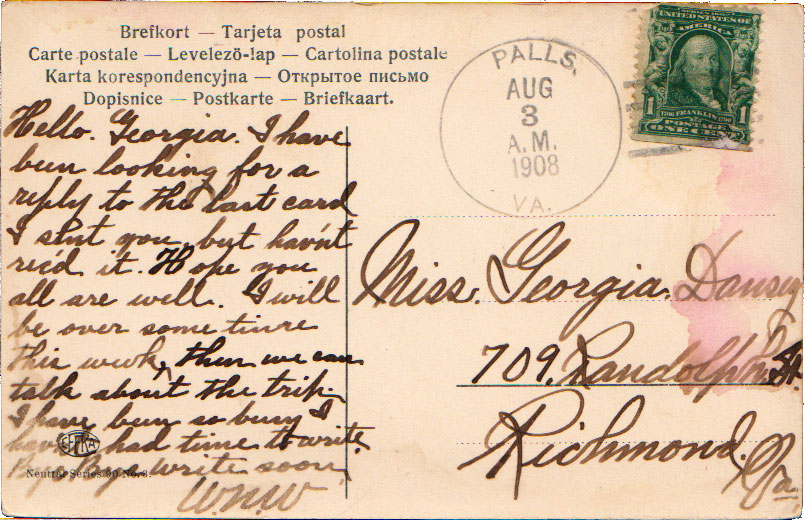 Brefkort — Tarjeta postal
Carte postale — Levelező-lap — Cartolina postale
Karta korespondencyjna — Открытое письмо
Dopisnice — Postkarte — Briefkaart.
PALLS.
AUG
3
A.M.
1908
VA.
UNITED STATES OF
AMERICA
1 1
1706 FRANKLIN 1790
POSTAGE
ONE CENT
Hello. Georgia. I have
been looking for a
reply to the last card
I sent you, but hav'nt
rec'd it. Hope you
all are well. I will
be over some time
this week, then we can
talk about the trip.
I have been so busy I
haven't had time to write.
write soon
W.N.W
Miss. Georgia. Dansey
709. Randolph St.
Richmond.
Va
Neutral Series 90 No. 3.